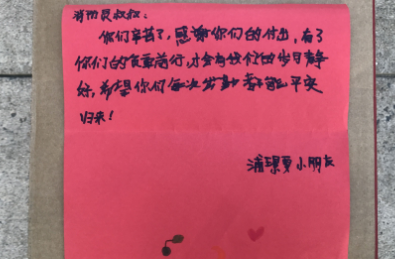 消防员叔叔：
你们辛苦了，感谢你们的付出，有了
你们的负重前行，才会有我们的岁月静
好，希望你们每次出动都能平安
归来！
小朋友